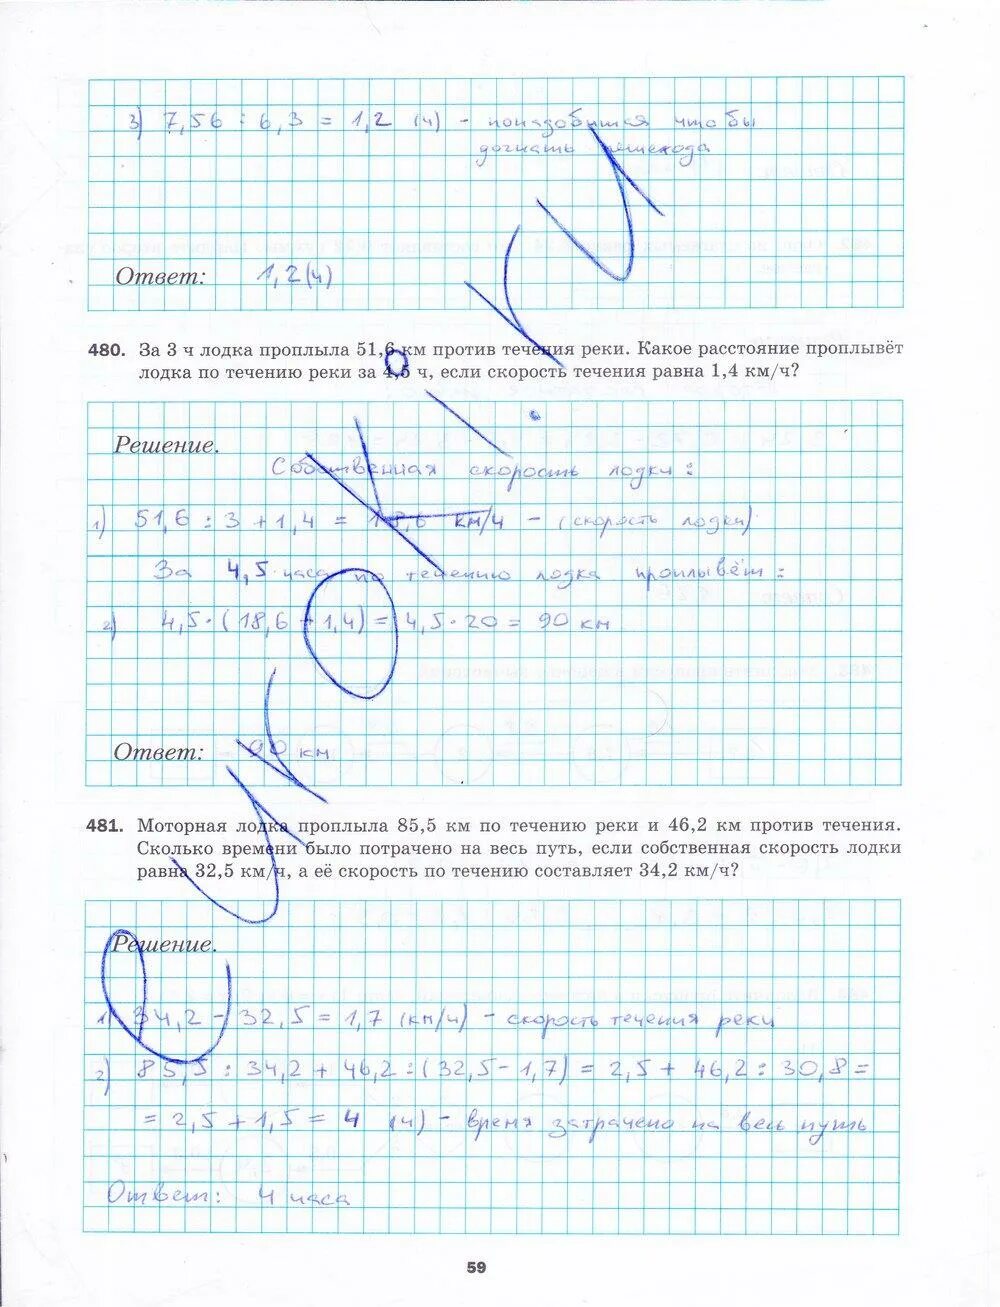 3) 7,56 : 6,3 = 1,2 (ч) - понадобится чтобы
догнать пешехода
Ответ: 1,2(ч)
480. За 3 ч лодка проплыла 51,6 км против течения реки. Какое расстояние проплывёт
лодка по течению реки за 4,5 ч, если скорость течения равна 1,4 км/ч?
Решение.
Собственная скорость лодки:
1) 51,6 : 3 + 1,4 = 18,6 км/ч - (скорость лодки)
За 4,5 часа по течению лодка проплывёт:
2) 4,5 · (18,6 + 1,4) = 4,5 · 20 = 90 км
Ответ: 90 км
481. Моторная лодка проплыла 85,5 км по течению реки и 46,2 км против течения.
Сколько времени было потрачено на весь путь, если собственная скорость лодки
равна 32,5 км/ч, а её скорость по течению составляет 34,2 км/ч?
Решение.
1) 34,2 - 32,5 = 1,7 (км/ч) - скорость течения реки
2) 85,5 : 34,2 + 46,2 : (32,5 - 1,7) = 2,5 + 46,2 : 30,8 =
= 2,5 + 1,5 = 4 (ч) - время затрачено на весь путь
Ответ: 4 часа
59